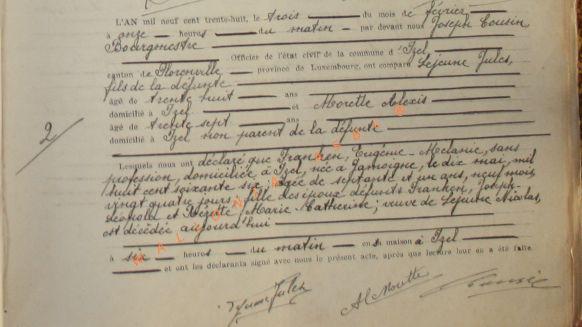 L'AN mil neuf cent trente-huit, le trois du mois de février
à onze heures du matin par devant nous Joseph Cousin
Bourgmestre Officier de l'état civil de la commune d'Izel
canton de Florenville province de Luxembourg, ont comparu Lejeune Jules,
fils de la défunte
âgé de trente huit ans
domicilié à Izel et Morette Alexis
âgé de trente sept ans
domicilié à Izel non parent de la défunte
2
Lesquels nous ont déclaré que Franken, Eugénie-Mélanie, sans
profession, domiciliée à Izel, née à Jamoigne, le dix mai, mil
huit cent soixante six, âgée de septante et un ans, neuf mois,
vingt quatre jours, fille des époux défunts Franken, Joseph-
et Marie-Catherine; veuve de Lejeune Nicolas,
est décédée aujourd'hui
à six heures du matin en sa maison à Izel
et ont les déclarants signé avec nous le présent acte, après que lecture leur en a été faite.
Lejeune Jules Al Morette Cousin